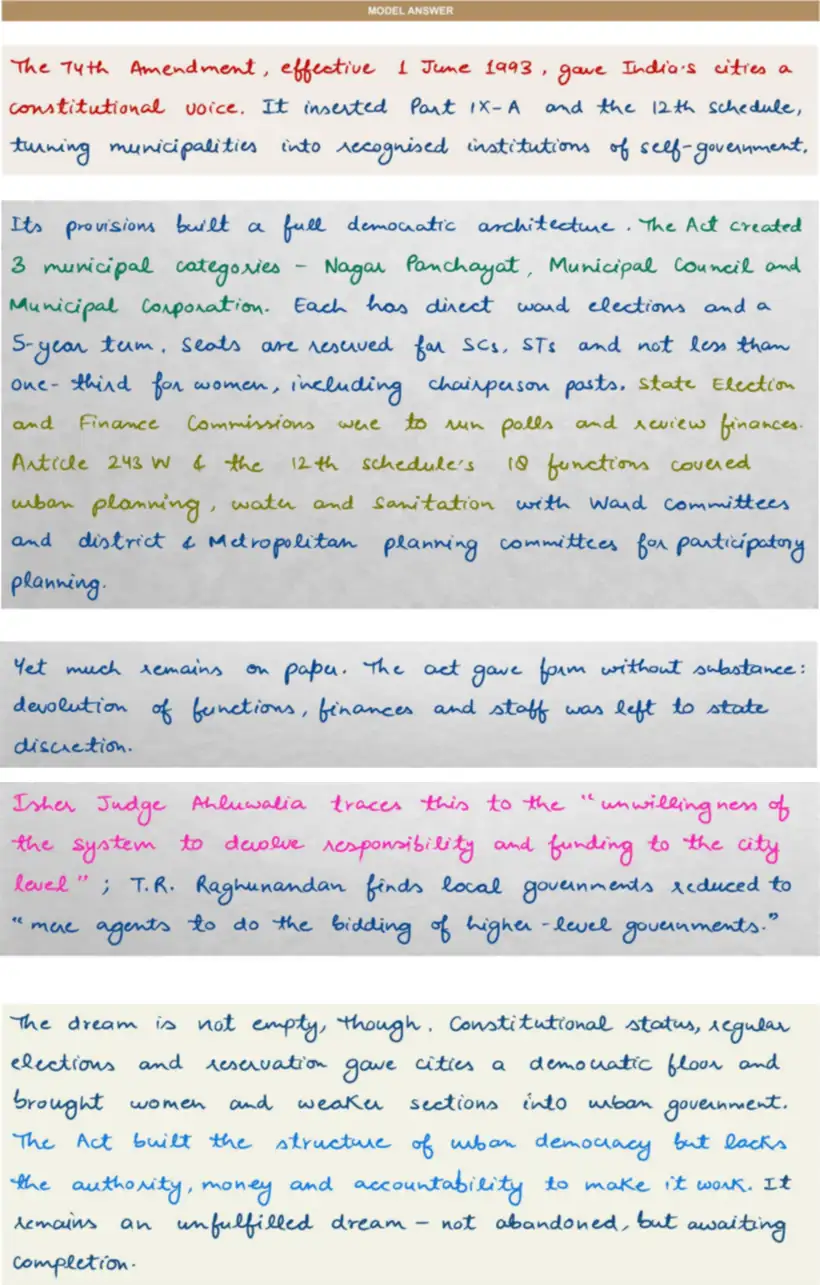 MODEL ANSWER
The 74th Amendment, effective 1 June 1993, gave India's cities a
constitutional voice. It inserted Part IX-A and the 12th schedule,
turning municipalities into recognised institutions of self-government.
Its provisions built a full democratic architecture. The Act created
3 municipal categories - Nagar Panchayat, Municipal Council and
Municipal Corporation. Each has direct ward elections and a
5-year term. Seats are reserved for SCs, STs and not less than
one-third for women, including chairperson posts. State Election
and Finance Commissions were to run polls and review finances.
Article 243 W & the 12th schedule's 18 functions covered
urban planning, water and Sanitation with Ward committees
and district & Metropolitan planning committees for participatory
planning.
Yet much remains on paper. The act gave form without substance:
devolution of functions, finances and staff was left to state
discretion.
Isher Judge Ahluwalia traces this to the "unwillingness of
the system to devolve responsibility and funding to the city
level"; T.R. Raghunandan finds local governments reduced to
"mere agents to do the bidding of higher-level governments."
The dream is not empty, though. Constitutional status, regular
elections and reservation gave cities a democratic floor and
brought women and weaker sections into urban government.
The Act built the structure of urban democracy but lacks
the authority, money and accountability to make it work. It
remains an unfulfilled dream - not abandoned, but awaiting
completion.